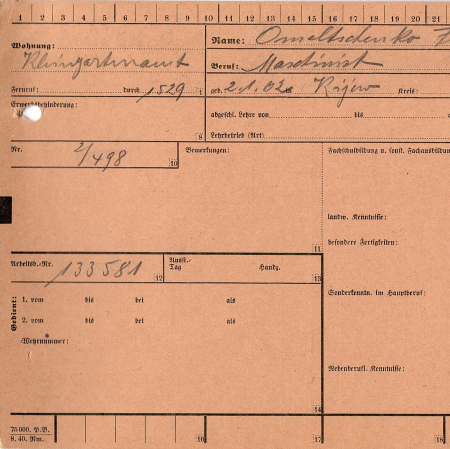 1 2 3 4 5 6 7 8 9 10 11 12 13 14 15 16 17 18 19 20 21
Wohnung: Name: Omeltschenko
Kleingartenamt Beruf: Maschinist
Fernruf: durch 1529 1 geb. 2.1.02 in Kijew Kreis:
Erwerbsbehinderung: abgeschl. Lehre von bis
9 Lehrbetrieb (Art)
Nr. 2/498 10 Bemerkungen: Fachschulbildung u. sonst. Fachausbildun
landw. Kenntnisse:
11 besondere Fertigkeiten:
Arbeitsb.-Nr. 133581 12 Ausst.-Tag Handz. 13
Gedient: 1. vom bis bei als Sonderkenntn. im Hauptberuf:
2. vom bis bei als
Wehrnummer:
Nebenberufl. Kenntnisse:
14
75 000. D. B.
8. 40. Nm. 16 17 18